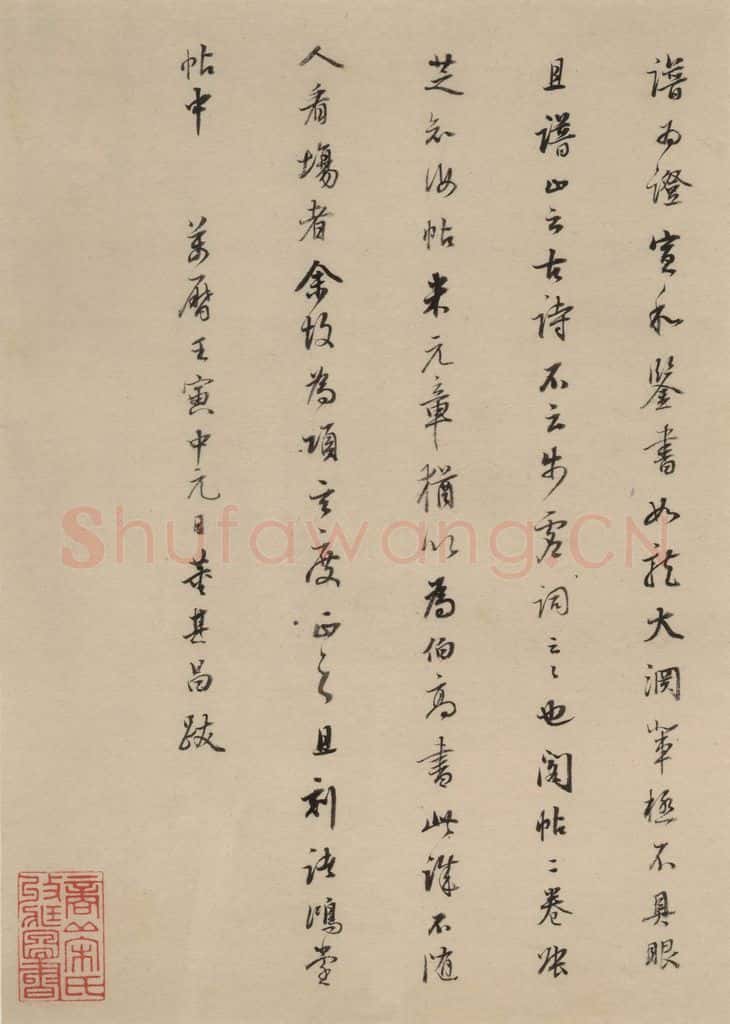 譜为證宣和鑒書如龍大渊軰極不具眼
且譜止云古詩不云步虛詞云云也閣帖二卷張
芝知汝帖米元章猶以為伯高書此誰不隨
人看塲者余故為項玄度正之且刻諸鴻堂
帖中 萬曆壬寅中元日董其昌跋
Shufawang.CN